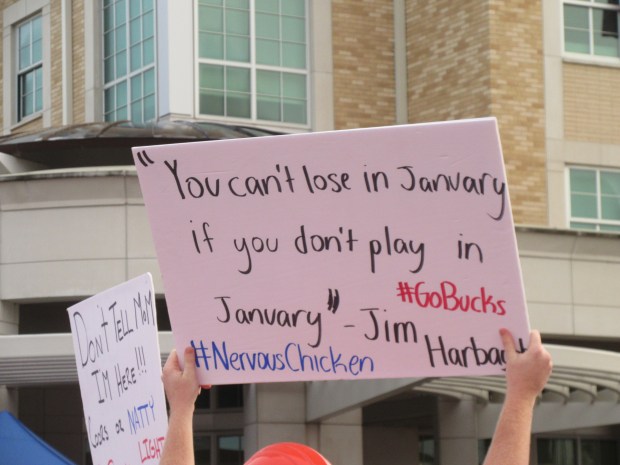 "You can't lose in January
if you don't play in
January" - Jim Harbaugh
#GoBucks
#NervousChicken
DON'T TELL MOM
I'M HERE!!!
COORS OR NATTY
LIGHT